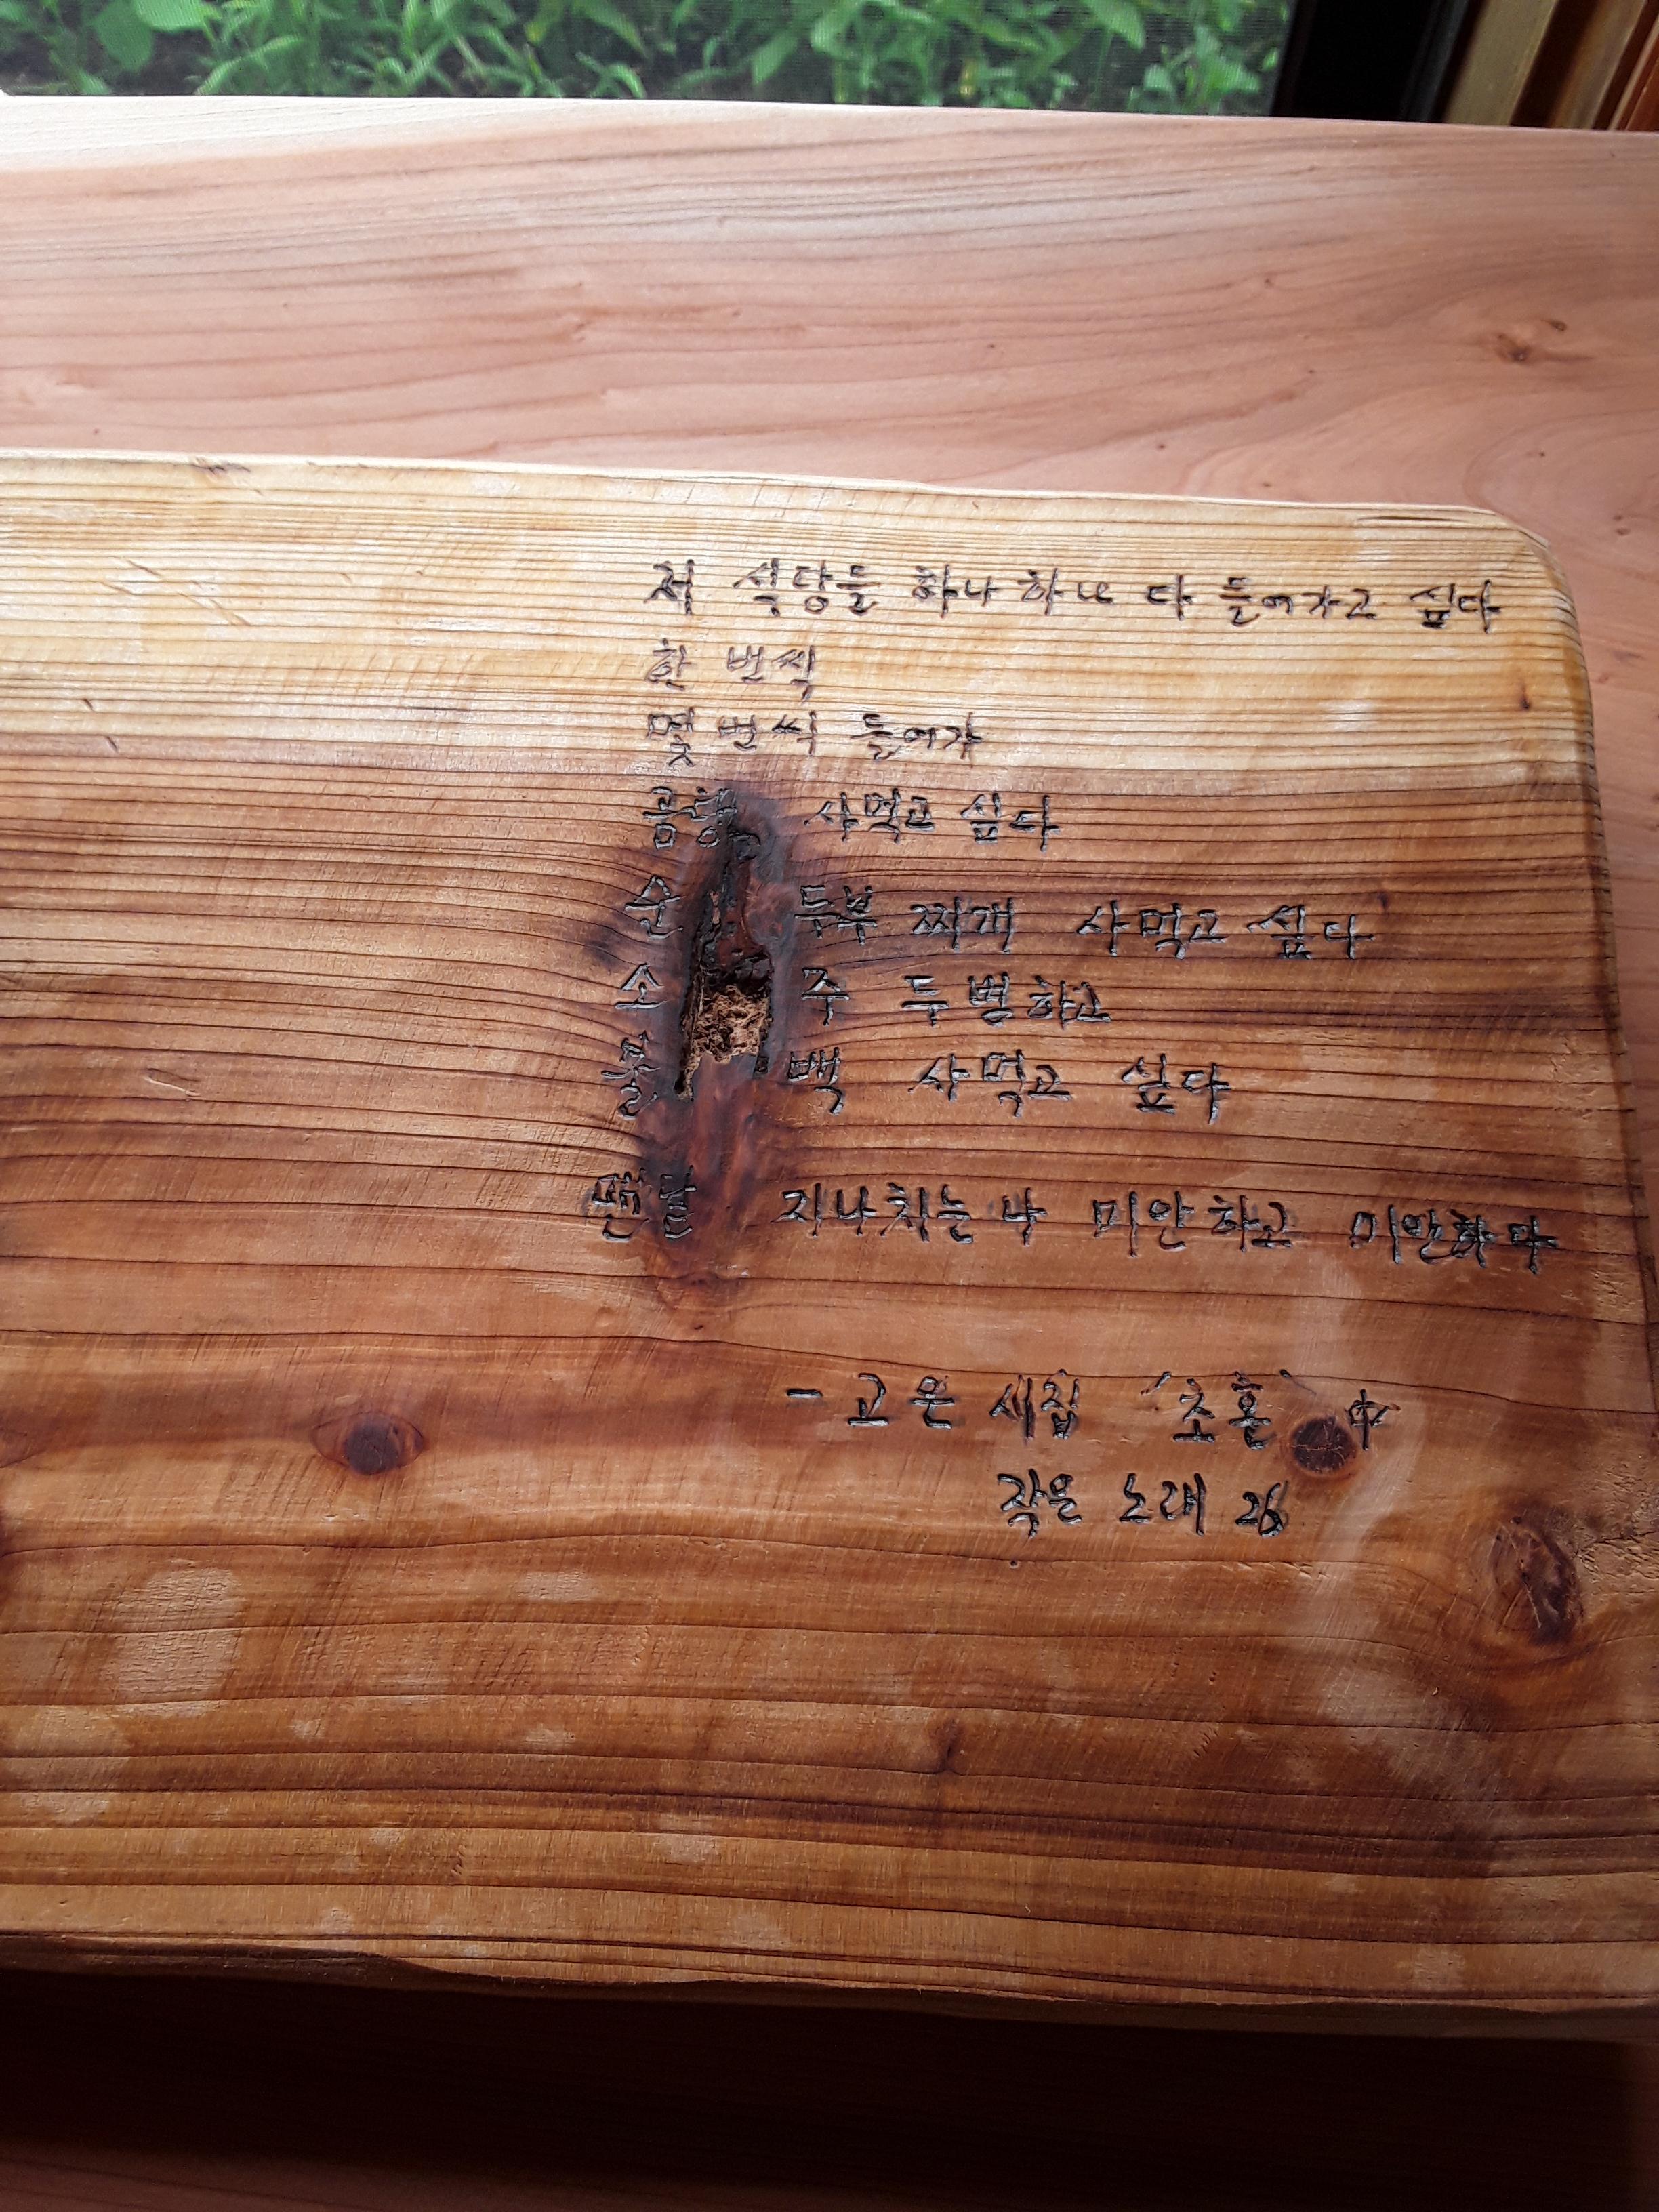 저 식당들 하나 하나 다 들어가고 싶다
한 번씩
몇 번씩 들어가
곰탕 사먹고 싶다
순두부 찌개 사먹고 싶다
소주 두 병하고
수백 사먹고 싶다
맨날 지나치는 나 미안하고 미안하다
- 고은 새집 '초혼' 中
작은 노래 26